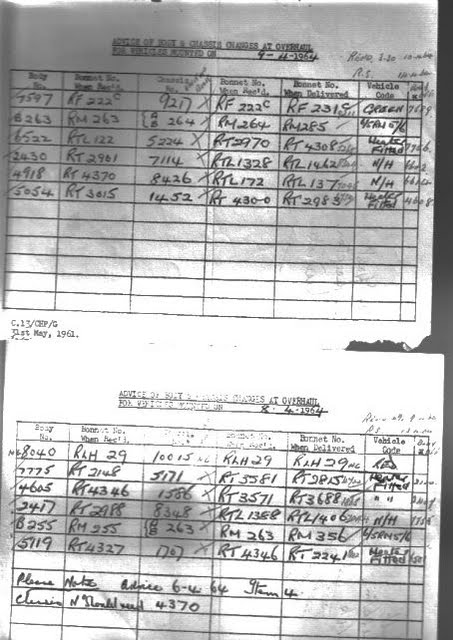 ADVICE OF BODY & CHASSIS CHANGES AT OVERHAUL
FOR VEHICLES MOUNTED ON 9-4-1964
Body No. Bonnet No. When Rec'd. Chassis No. Bonnet No. When Rec'd. Bonnet No. When Delivered Vehicle Code
7597 RF 222C 9217 X RF 222C RF 231C GREEN
B263 RM 263 B 264 X RM264 RM285 4/5RM5/6
6522 RTL122 5224 X RT2970 RT 4308 Heater Fitted
2430 RT 2901 7114 X RTL1328 RTL1462 N/H
4918 RT 4370 8426 X RTL172 RTL137 N/H
5054 RT 3015 1452 X RT 4300 RT 2983 Heater Fitted
C.13/CHF/G
31st May, 1961.
ADVICE OF BODY & CHASSIS CHANGES AT OVERHAUL
FOR VEHICLES MOUNTED ON 8.4-1964
Body No. Bonnet No. When Rec'd. Bonnet No. When Rec'd. Bonnet No. When Delivered Vehicle Code
NC 8040 RLH 29 10015 NC RLH 29 RLH 29 NC RED
7775 RT 2148 5171 RT 5581 RT2815 Heater Fitted
4605 RT4346 1586 X RT3571 RT3688 " "
2417 RT2988 8348 X RTL1358 RTL1406 N/H
B255 RM 255 B 263 X RM 263 RM 356 4/5RM5/6
5119 RT4327 1707 X RT 4346 RT 2241 Heater Fitted
Please Note Advice 6-4-64 Item 4.
Chassis N° Should read 4370